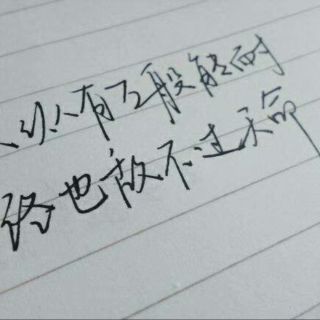 纵有万般能耐
终也敌不过天命